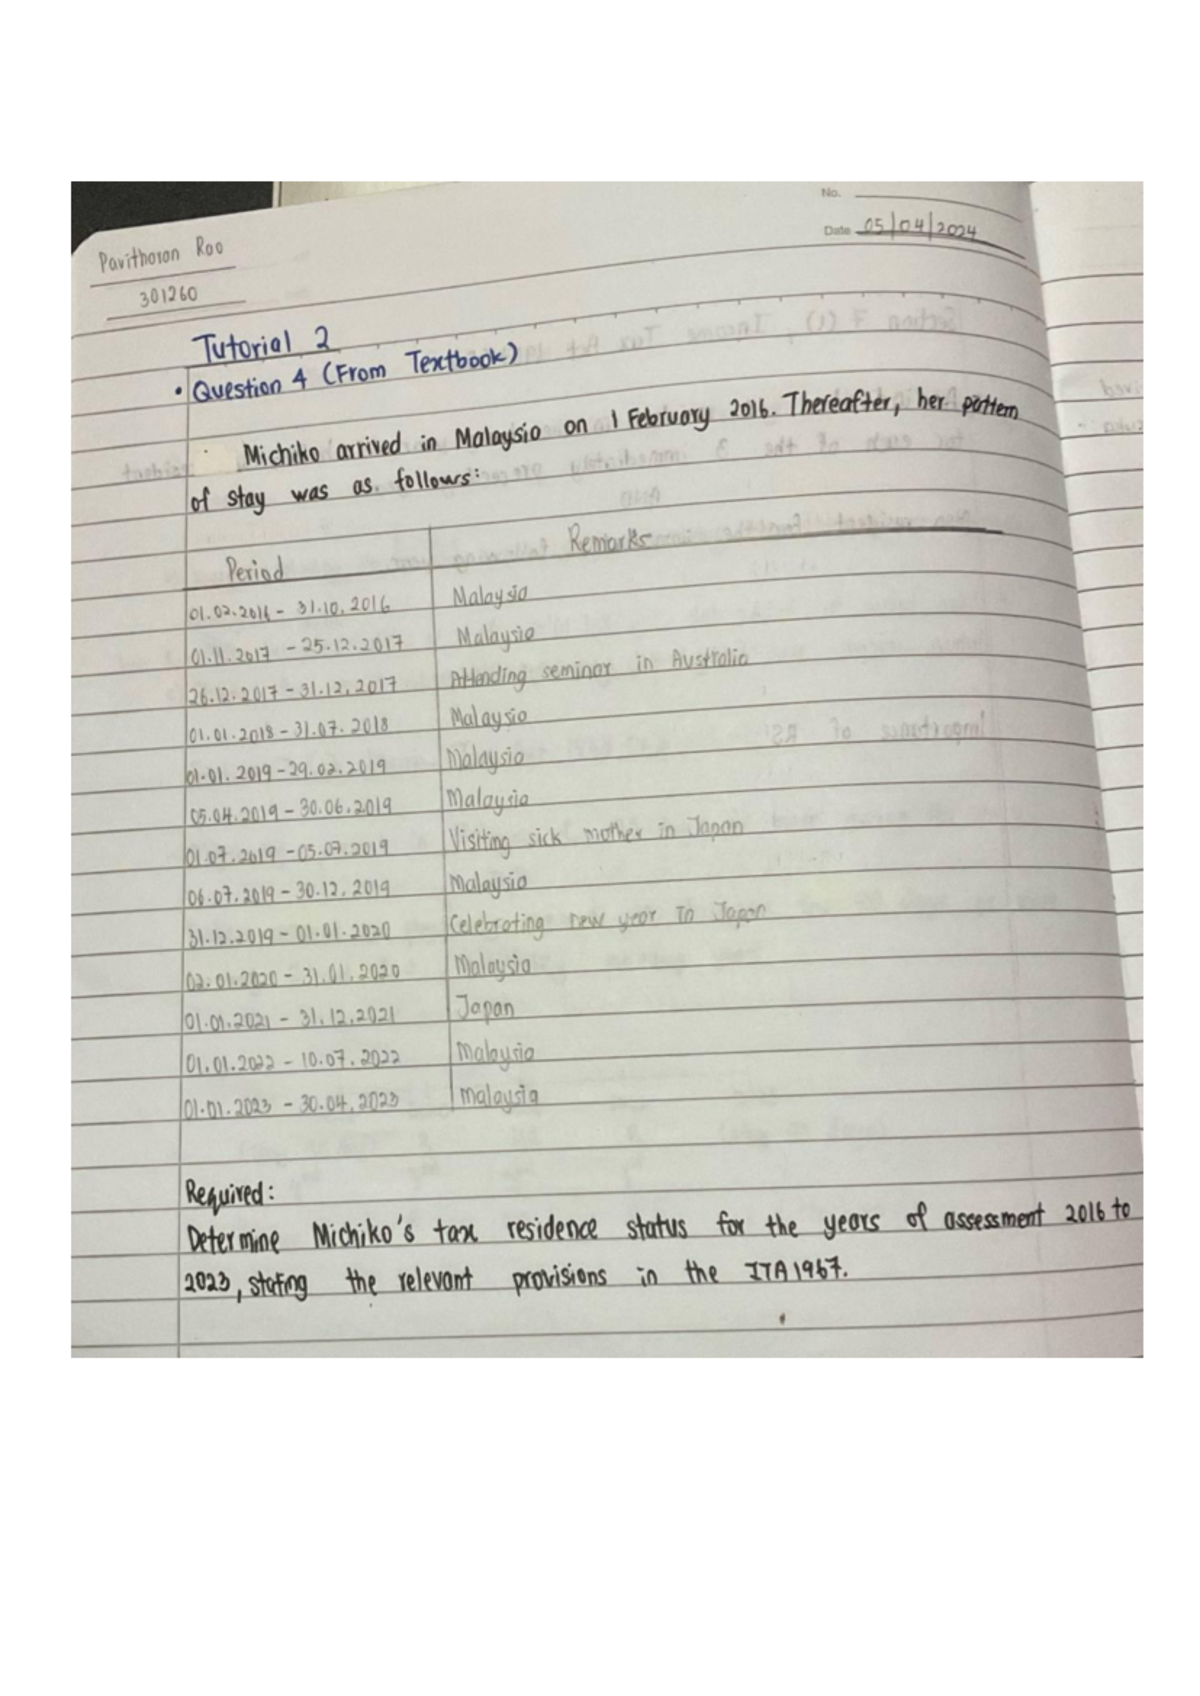 No.
Date 05/04/2024
Pavitharan Rao
301260
Tutorial 2
• Question 4 (From Textbook)
Michiko arrived in Malaysia on 1 February 2016. Thereafter, her pattern
of stay was as follows:
Period Remarks
01.02.2016 - 31.10.2016 Malaysia
01.11.2017 - 25.12.2017 Malaysia
26.12.2017 - 31.12.2017 Attending seminar in Australia
01.01.2018 - 31.07.2018 Malaysia
01.01.2019 - 29.02.2019 Malaysia
05.04.2019 - 30.06.2019 Malaysia
01.07.2019 - 05.07.2019 Visiting sick mother in Japan
06.07.2019 - 30.12.2019 Malaysia
31.12.2019 - 01.01.2020 Celebrating new year In Japan
02.01.2020 - 31.01.2020 Malaysia
01.01.2021 - 31.12.2021 Japan
01.01.2022 - 10.07.2022 Malaysia
01.01.2023 - 30.04.2023 Malaysia
Required:
Determine Michiko's tax residence status for the years of assessment 2016 to
2023, stating the relevant provisions in the ITA 1967.